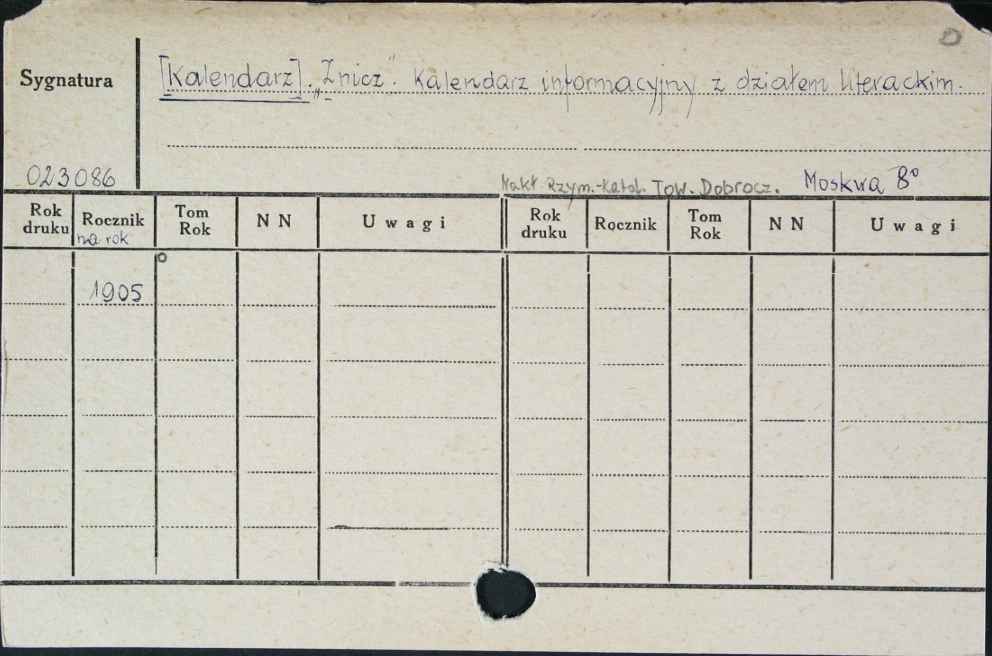 D
Sygnatura
[Kalendarz]. „Znicz". Kalendarz informacyjny z działem literackim.
023086
Nakł Rzym.-Katol. Tow. Dobrocz. Moskwa 8°
Rok druku Rocznik na rok Tom Rok N N Uwagi Rok druku Rocznik Tom Rok N N Uwagi
1905